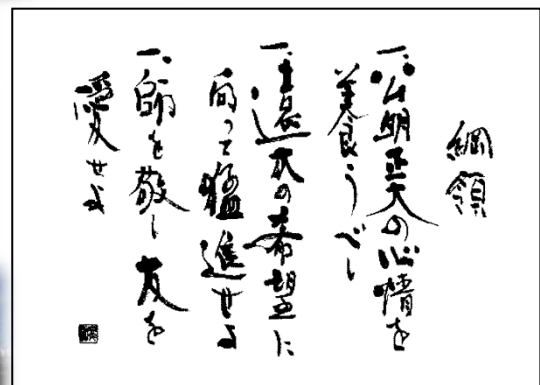 綱領
一、公明正大の心情を
養うべし
一、遠大の希望に
向って猛進せよ
一、師を敬し友を
愛せよ